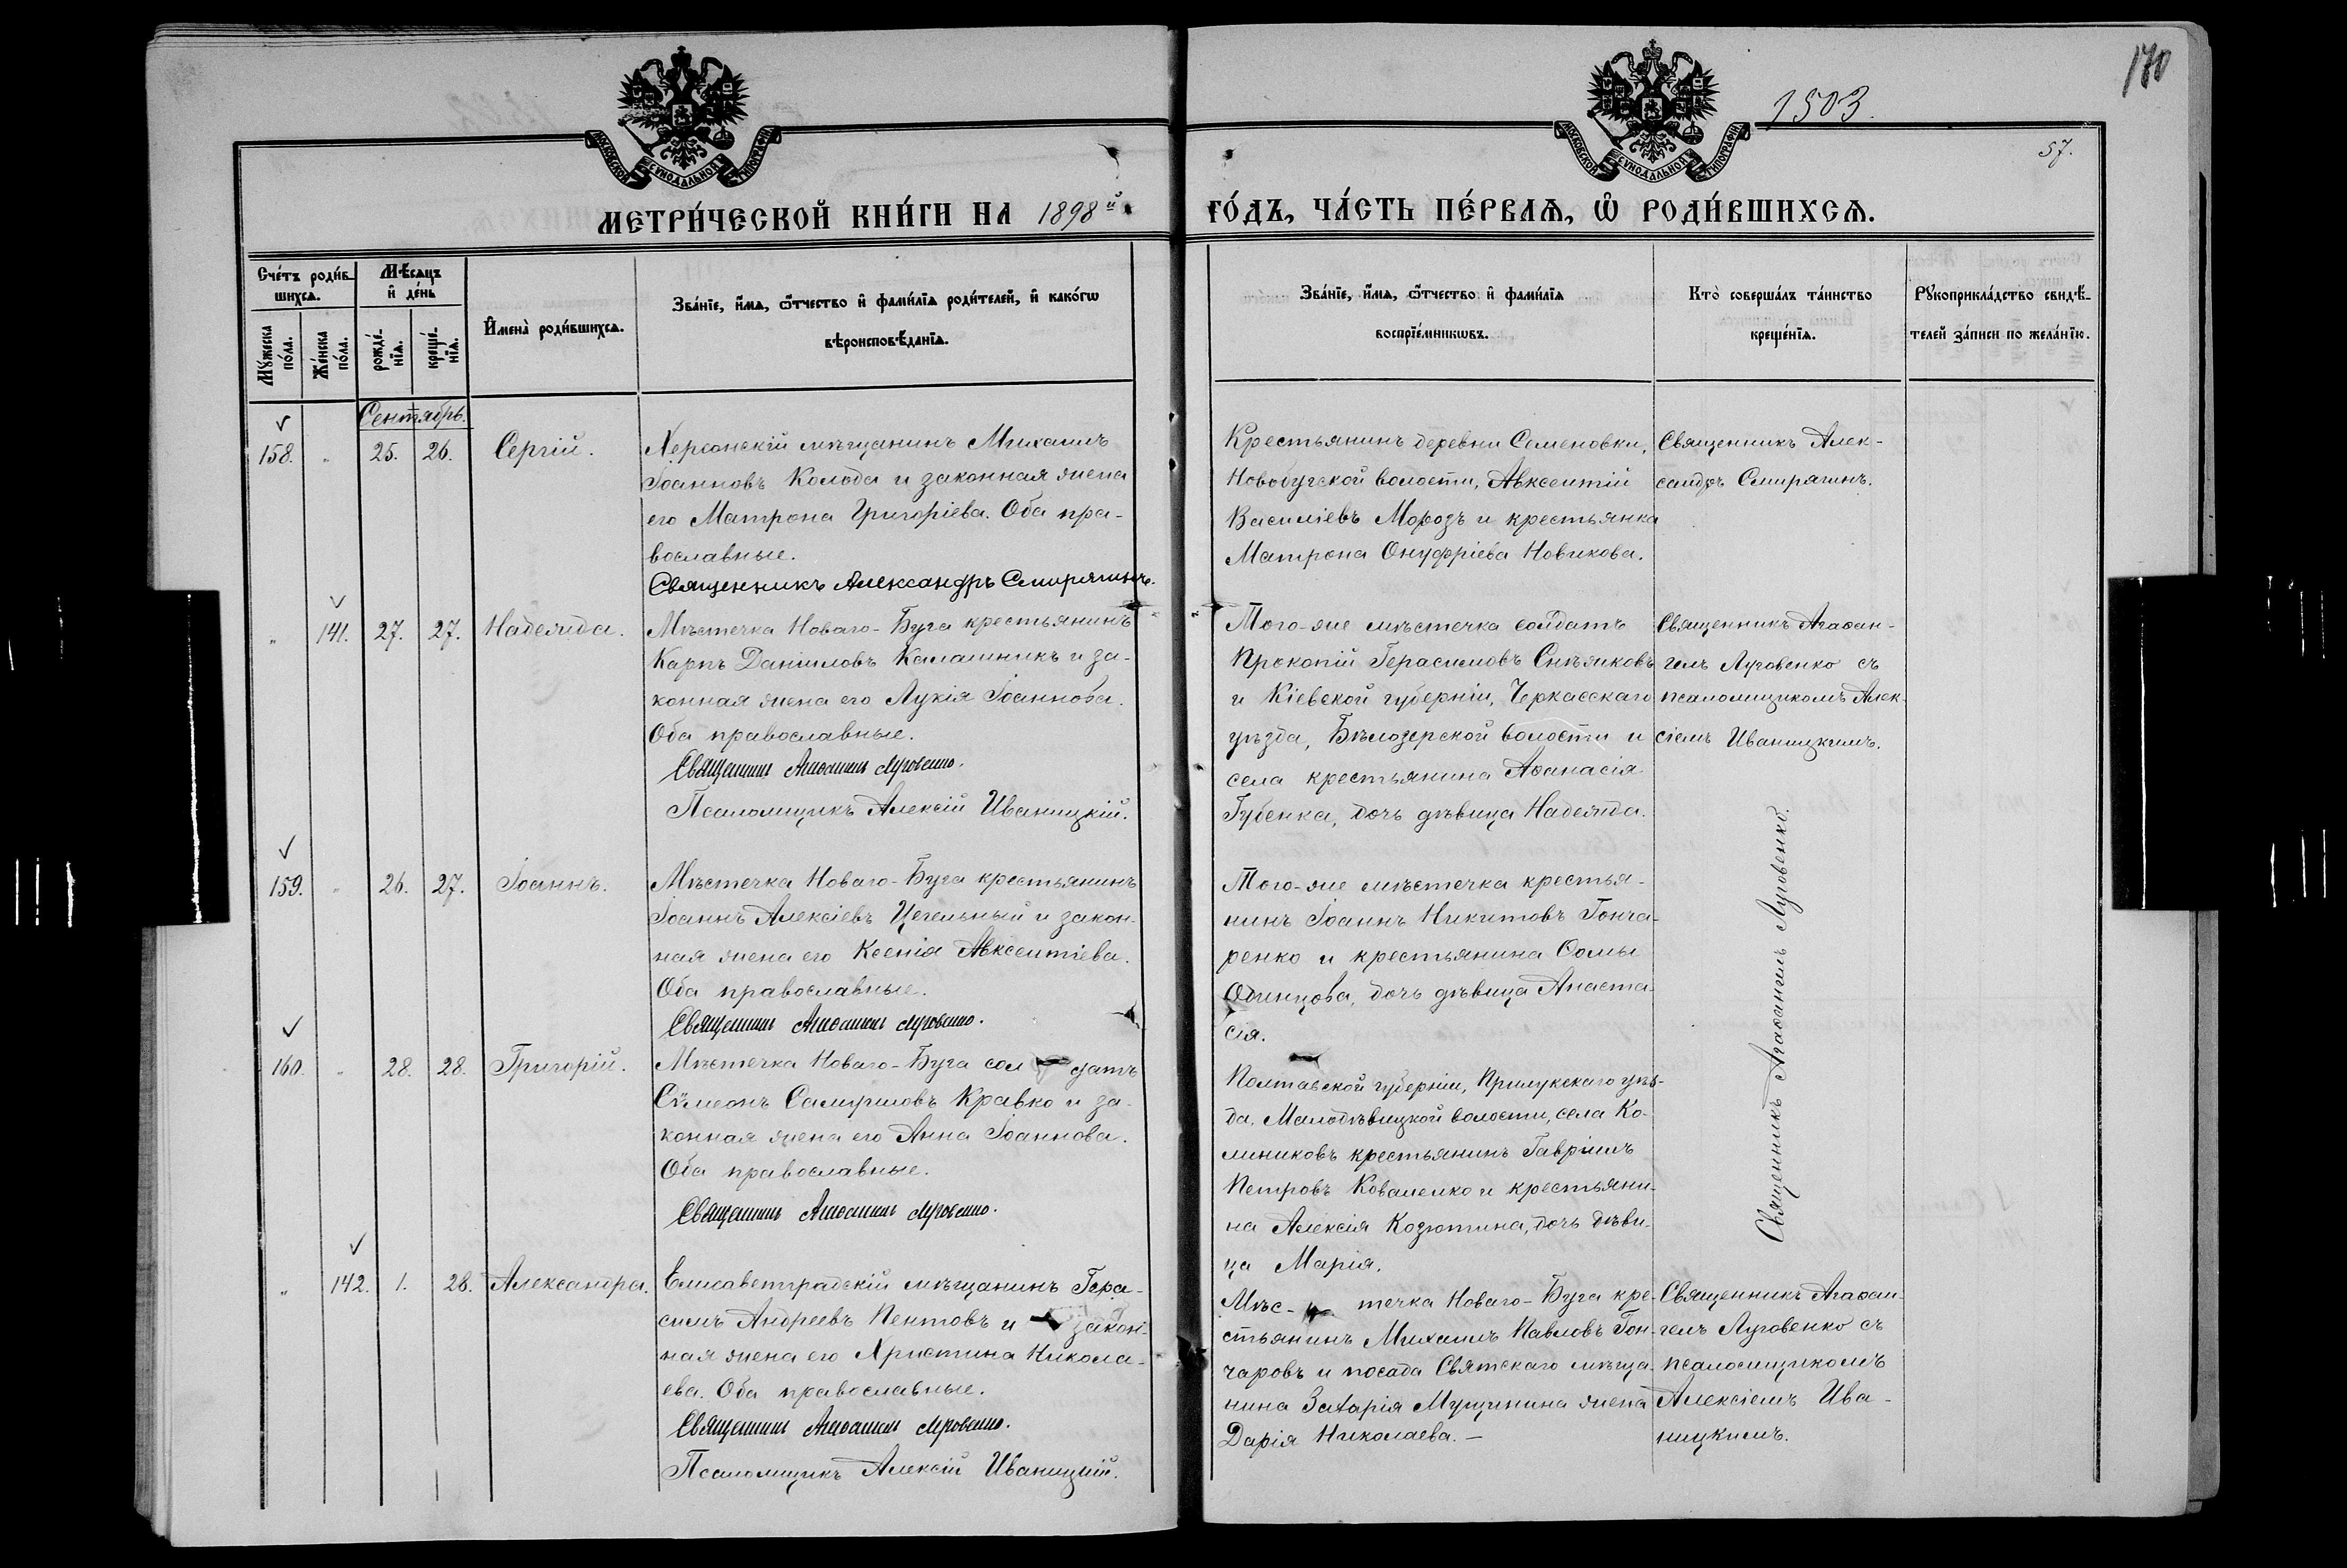 170
1503.
57.
МОСКОВСКОЙ СѴНОДАЛЬНОЙ ТИПОГРАФІИ
МОСКОВСКОЙ СѴНОДАЛЬНОЙ ТИПОГРАФІИ
МЕТРИ́ЧЕСКОЙ КНИ́ГИ НА 1898й ГО́ДЪ, ЧА́СТЬ ПЕ́РВАѦ, Ѡ҆ РОДИ́ВШИХСѦ.
Сче́тъ роди́в-
шихсѧ.
Мꙋжеска по́ла.
Же́нска по́ла.
Мѣ́сѧцъ
и҆ де́нь
рожде́-
нїѧ.
креще́-
нїѧ.
И҆мена̀ роди́вшихсѧ.
Зва́нїе, и҆́мѧ, ѻ҆́тчество и҆ фами́лїѧ роди́телей, и҆ како́гѡ
вѣроисповѣ́данїѧ.
Зва́нїе, и҆́мѧ, ѻ҆́тчество и҆ фами́лїѧ
воспрїе́мникѡвъ.
Кто̀ соверша́лъ та́инство
креще́нїѧ.
Рꙋкоприкла́дство свидѣ́-
телей за́писи по жела́нїю.
Сентябрь.
158. „ 25. 26. Сергій.
Херсонскій мѣщанинъ Михаилъ
Іоанновъ Колода и законная жена
его Матрона Григоріева. Оба пра-
вославные.
Священникъ Александръ Смирягинъ.
Крестьянинъ деревни Семеновки,
Новобугской волости, Авксентій
Василіевъ Морозъ и крестьянка
Матрона Онуфріева Новикова.
Священникъ Алек-
сандръ Смирягинъ.
„ 141. 27. 27. Надежда.
Мѣстечка Новаго-Буга крестьянинъ
Карпъ Даніиловъ Калашникъ и за-
конная жена его Лукія Іоаннова.
Оба православные.
Священникъ Агаѳангелъ Луговенко.
Псаломщикъ Алексій Иваницкій.
Того-же мѣстечка солдатъ
Прокопій Герасимовъ Снѣжковъ
и Кіевской губерніи, Черкасскаго
уѣзда, Бѣлозерской волости и
села крестьянина Аѳанасія
Губенка, дочь дѣвица Надежда.
Священникъ Агаѳан-
гелъ Луговенко съ
псаломщикомъ Алек-
сіемъ Иваницкимъ.
159. „ 26. 27. Іоаннъ.
Мѣстечка Новаго-Буга крестьянинъ
Іоаннъ Алексіевъ Цегельный и закон-
ная жена его Ксенія Авксентіева.
Оба православные.
Священникъ Агаѳангелъ Луговенко.
Того-же мѣстечка крестья-
нинъ Іоаннъ Никитовъ Гонча-
ренко и крестьянина Ѳомы
Одинцова, дочь дѣвица Анаста-
сія.
Священникъ Агаѳангелъ Луговенко.
160. „ 28. 28. Григорій.
Мѣстечка Новаго-Буга сол датъ
Сѵмеонъ Самуиловъ Кравко и за-
конная жена его Анна Іоаннова.
Оба православные.
Священникъ Агаѳангелъ Луговенко.
Полтавской губерніи, Прилукскаго уѣз-
да, Малодѣвицкой волости, села Ко-
лниковъ крестьянинъ Гавріилъ
Петровъ Коваленко и крестьяни-
на Алексія Козютина, дочь дѣви-
ца Марія.
„ 142. 1. 28. Александра.
Елисаветградскій мѣщанинъ Гера-
симъ Андреевъ Пентовъ и закон-
ная жена его Христина Никола-
ева. Оба православные.
Священникъ Агаѳангелъ Луговенко.
Псаломщикъ Алексій Иваницкій.
Мѣс- течка Новаго-Буга кре-
стьянинъ Михаилъ Павловъ Гон-
чаровъ и посада Святскаго мѣща-
нина Захарія Мущинина жена
Дарія Николаева. —
Священникъ Агаѳан-
гелъ Луговенко съ
псаломщикомъ
Алексіемъ Ива-
ницкимъ.